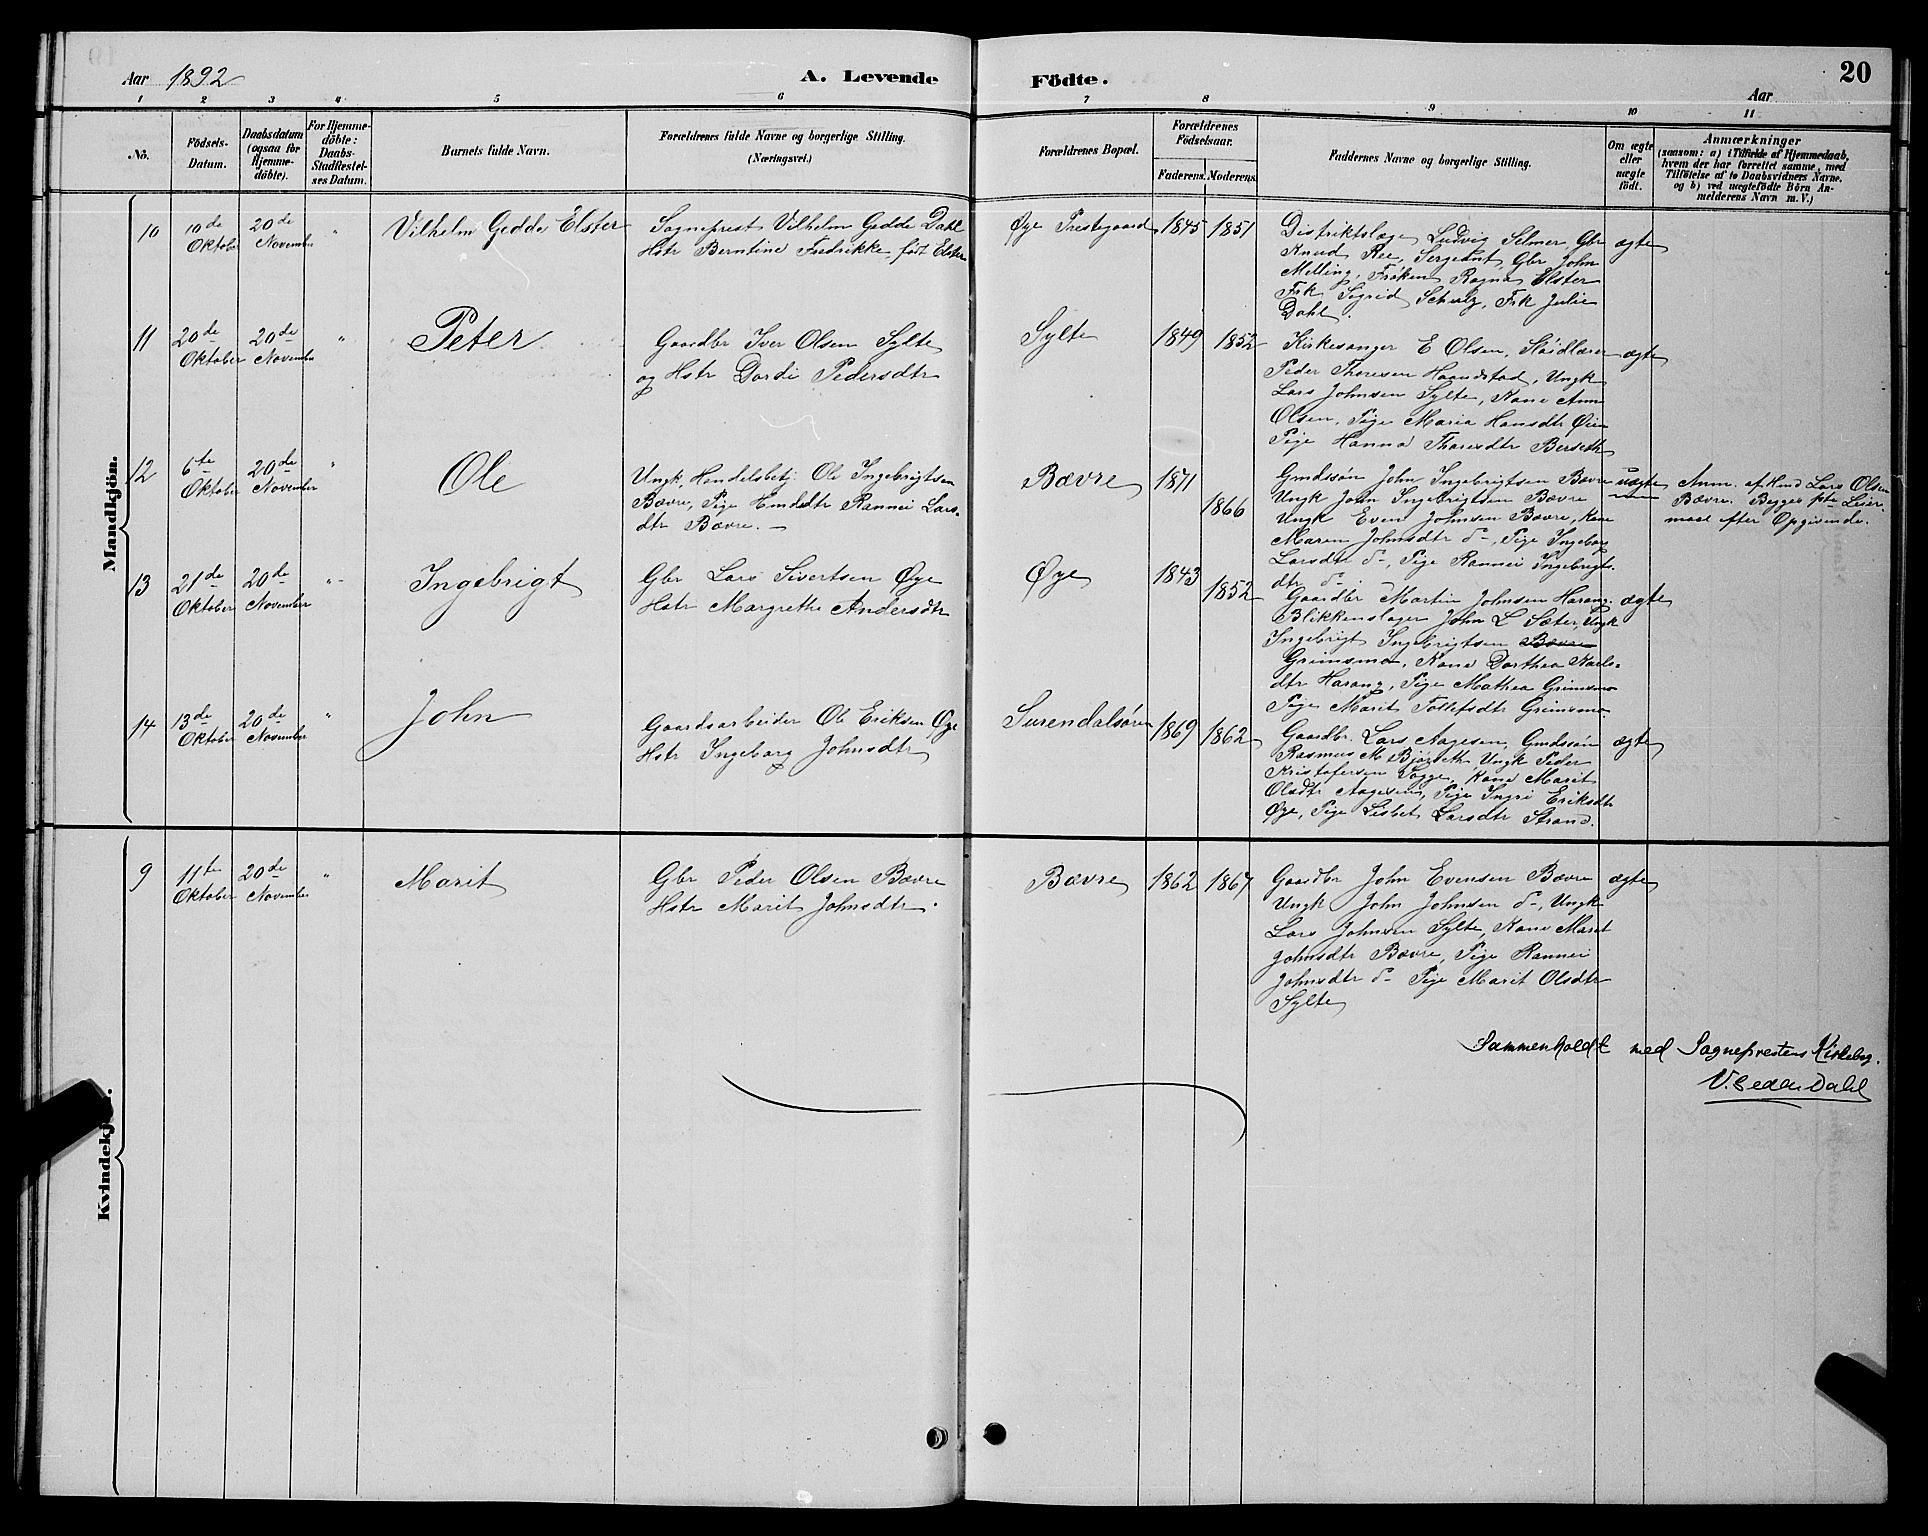 Aar 1892
A. Levende Födte.
20
Aar
1 2 3 4 5 6 7 8 9 10 11
No.
Födsels-Datum.
Daabsdatum (ogsaa for Hjemme-döbte).
For Hjemme-döbte: Daabs-Stadfæstel-ses Datum.
Barnets fulde Navn.
Forældrenes fulde Navne og borgerlige Stilling.
(Næringsvei.)
Forældrenes Bopæl.
Forældrenes Födselsaar.
Faderens. Moderens.
Faddernes Navne og borgerlige Stilling.
Om ægte eller uægte födt.
Anmærkninger
(saasom: a) i Tilfælde af Hjemmedaab,
hvem der har forrettet samme, med
Tilföielse af to Daabsvidners Navne,
og b) ved uægtefödte Börn An-
melderens Navn m. V.)
Mandkjön.
10 10de Oktober 20de November " Vilhelm Gedde Elster
Sogneprest Vilhelm Gedde Dahl
Hstr Berntine Fredrikke født Elster
Øye Prestegaard 1845 1851
Distriktslæge Ludvig Selmer, Gbr
Knud Ree, Sergeant, Gbr John
Melling, Frøken Ragna Elster
Frk Sigrid Schulz, Frk Julie
Dahl.
ægte
11 20de Oktober 20de November " Peter
Gaardbr Iver Olsen Sylte
og Hstr Dordi Pedersdtr
Sylte 1849 1852
Kirkesanger E Olsen, Sløidlærer
Peder Thoresen Haandstad, Ungk
Lars Johnsen Sylte, Kone Ann
Olsen, Pige Maria Hansdtr Øien
Pige Hanna Thoresdtr Berseth
ægte
12 6te Oktober 20de November " Ole
Ungk, Handelsbetj. Ole Ingebrigtsen
Bævre, Pige Hmdsdtr Rannei Lars-
dtr Bævre. —
Bævre 1871 1866
Gmdssøn John Ingebrigtsen Bævre
Ungk John Ingebrigtsen Bævre
Ungk Even Johnsen Bævre, Kone
Maren Johnsdtr do, Pige Ingeborg
Larsdtr do, Pige Rannei Ingebrigt-
dtr do
uægte
Anm. af Hmd Lars Olsen
Bævre. Begges 1ste Leier-
maal efter Opgivende.
13 21de Oktober 20de November " Ingebrigt
Gbr Lars Sivertsen Øye
Hstr Margrethe Andersdtr
Øye 1843 1852
Gaardbr Martin Johnsen Harang
Blikkenslager John L Sæter, Ungk
Ingebrigt Ingebrigtsen Bævre
Grimsmo, Kone Dorthea Karls-
dtr Harang, Pige Mathea Grimsmo
Pige Marit Tollefsdtr Grimsmo.
ægte
14 13de Oktober 20de November " John
Gaardsarbeider Ole Eriksen Øye
Hstr Ingeborg Johnsdtr
Surendalsøren 1869 1862
Gaardbr. Lars Aagesen, Gmdssøn
Rasmus M Bjørseth, Ungk Peder
Kristofersen Sogge, Kone Marit
Olsdtr Aagesen, Pige Ingri Eriksdtr
Øye, Pige Lisbet Larsdtr Strand.
ægte
Kvindekjön.
9 11te Oktober 20de November " Marit
Gbr Peder Olsen Bævre
Hstr Marit Johnsdtr.
Bævre 1862 1867
Gaardbr John Evensen Bævre
Ungk John Johnsen do, Ungk
Lars Johnsen Sylte, Kone Marit
Johnsdtr Bævre, Pige Rannei
Johnsdtr do Pige Marit Olsdtr
Sylte
ægte
Sammenholdt med Sogneprestens Kirkebog.
V. Gedde Dahl